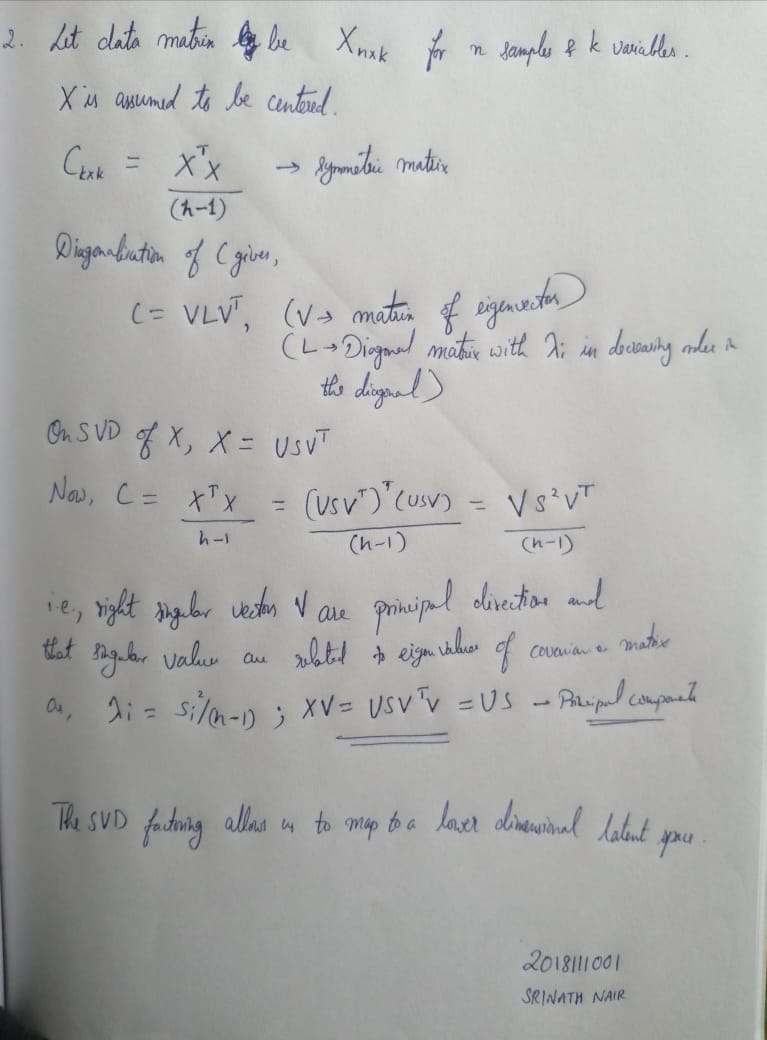 2. Let data matrix be X_{n×k} for n samples & k variables.
X is assumed to be centered.
C_{k×k} = X^T X / (n-1) → Symmetric matrix
Diagonalisation of C gives,
C = VLV^T, (V → matrix of eigenvectors)
(L → Diagonal matrix with λi in decreasing order in
the diagonal)
On SVD of X, X = USV^T
Now, C = X^T X / n-1 = (USV^T)^T (USV) / (n-1) = V S² V^T / (n-1)
i.e., right singular vectors V are principal directions and
that singular values are related to eigen values of covariance matrix
as, λi = Si²/(n-1) ; XV = USV^T V = US → Principal components
The SVD factoring allows us to map to a lower dimensional latent space.
2018111001
SRINATH NAIR